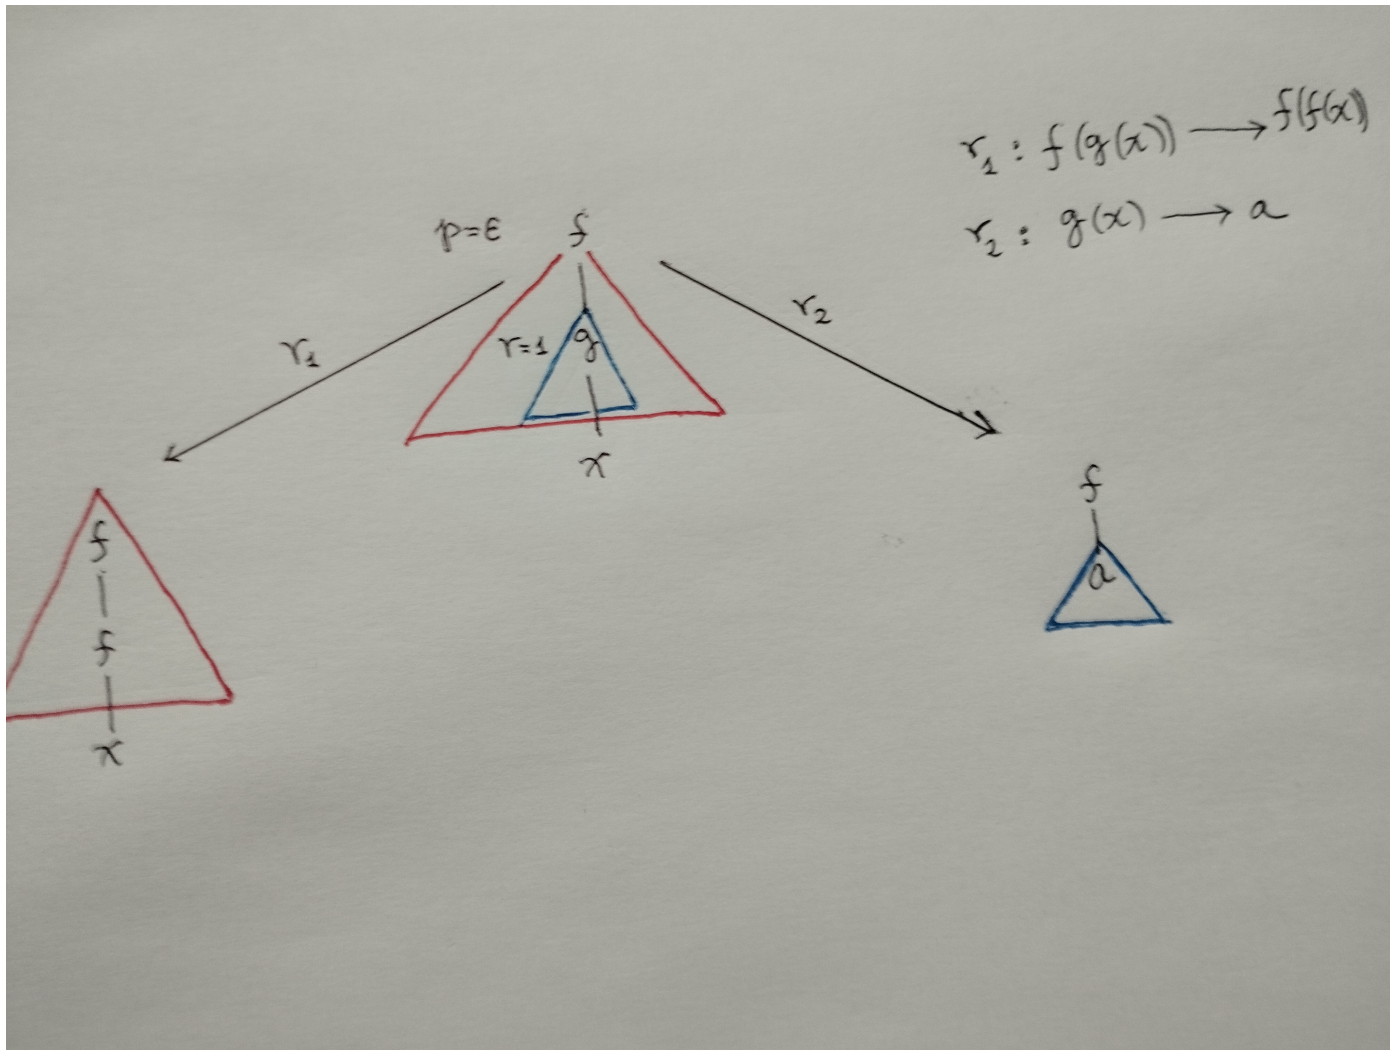 r₁ : f(g(x)) ⟶ f(f(x))
r₂ : g(x) ⟶ a
p=ε f
r₁
r=1 g
r₂
x
f
f
x
f
a